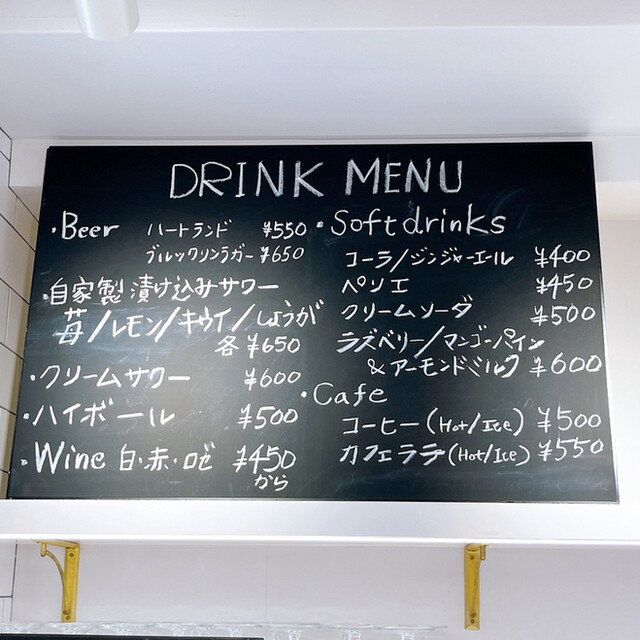 DRINK MENU
・Beer ハートランド ¥550
ブルックリンラガー ¥650
・自家製漬け込みサワー
苺/レモン/キウイ/しょうが
各¥650
・クリームサワー ¥600
・ハイボール ¥500
・Wine 白・赤・ロゼ ¥450
から
・Softdrinks
コーラ/ジンジャーエール ¥400
ペリエ ¥450
クリームソーダ ¥500
ラズベリー/マンゴーパイン
&アーモンドミルク ¥600
・Cafe
コーヒー(Hot/Ice) ¥500
カフェラテ(Hot/Ice) ¥550